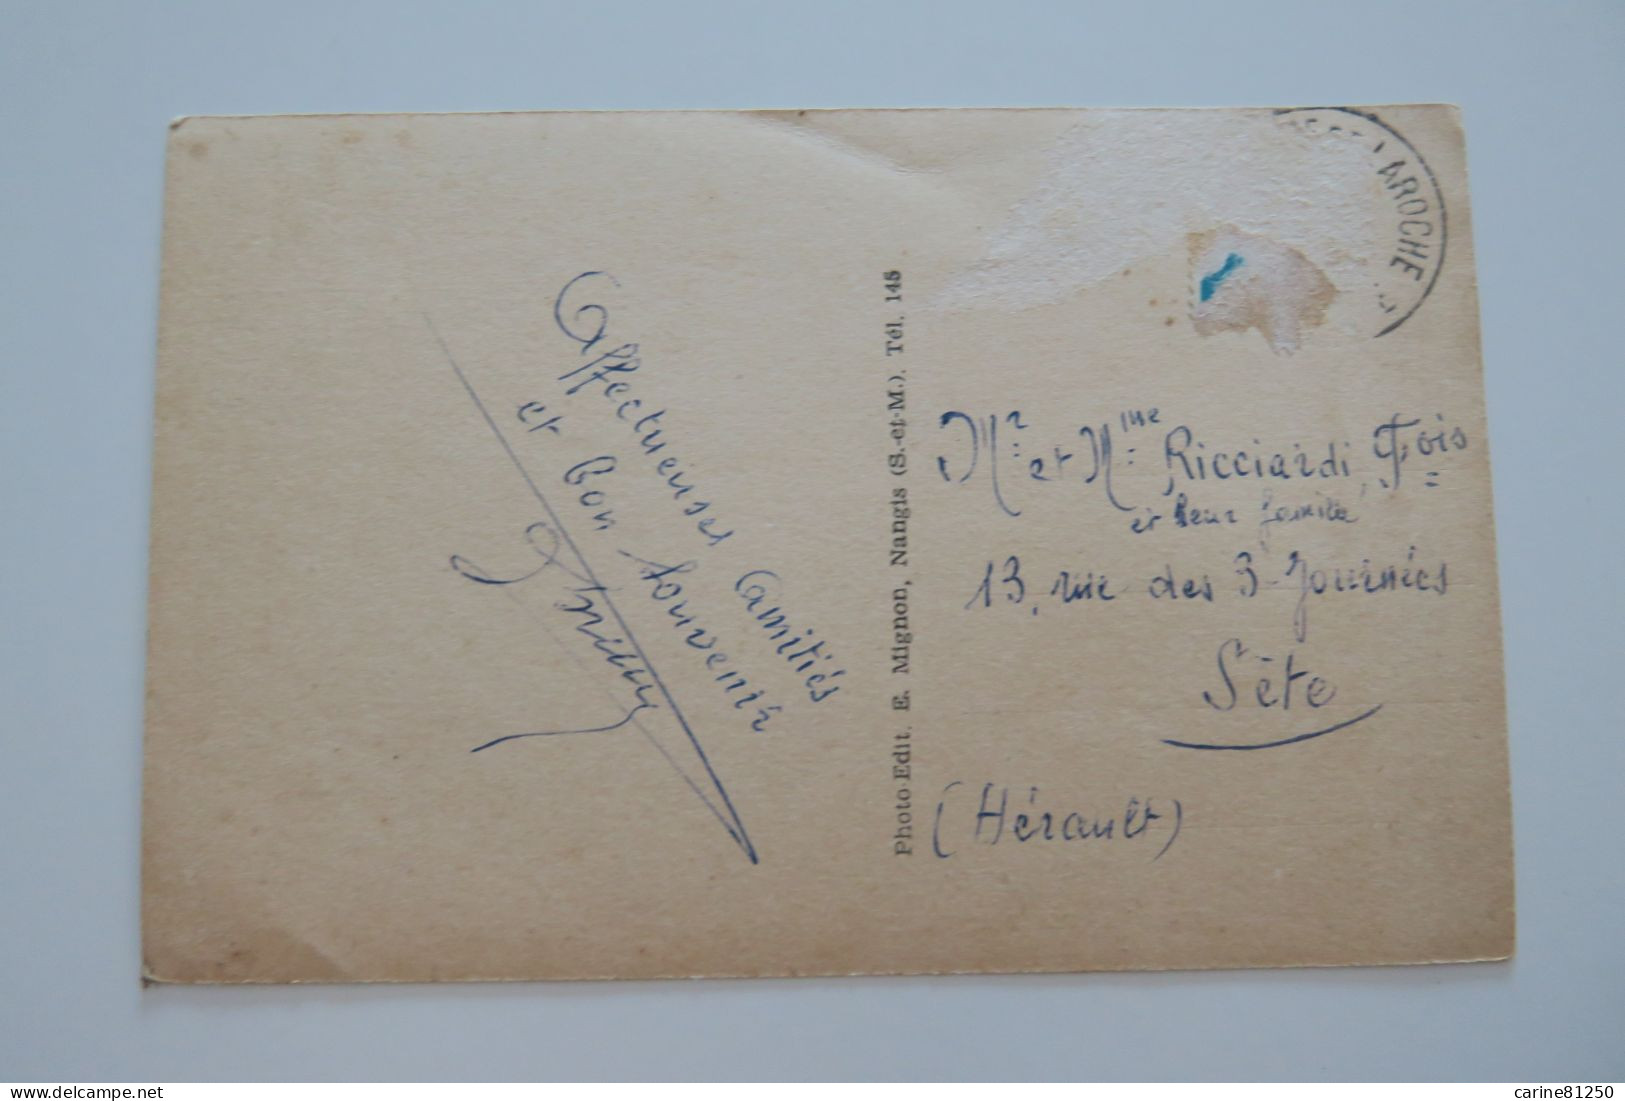 Affectueuses amitiés
et bon souvenir
Photo-Edit. E. Mignon, Nangis (S.-et-M.). Tél. 145
AROCHE
Mr et Mme Ricciardi Fois
et leur famille
13, rue des 3 Journées
Sète
(Hérault)
carine81250